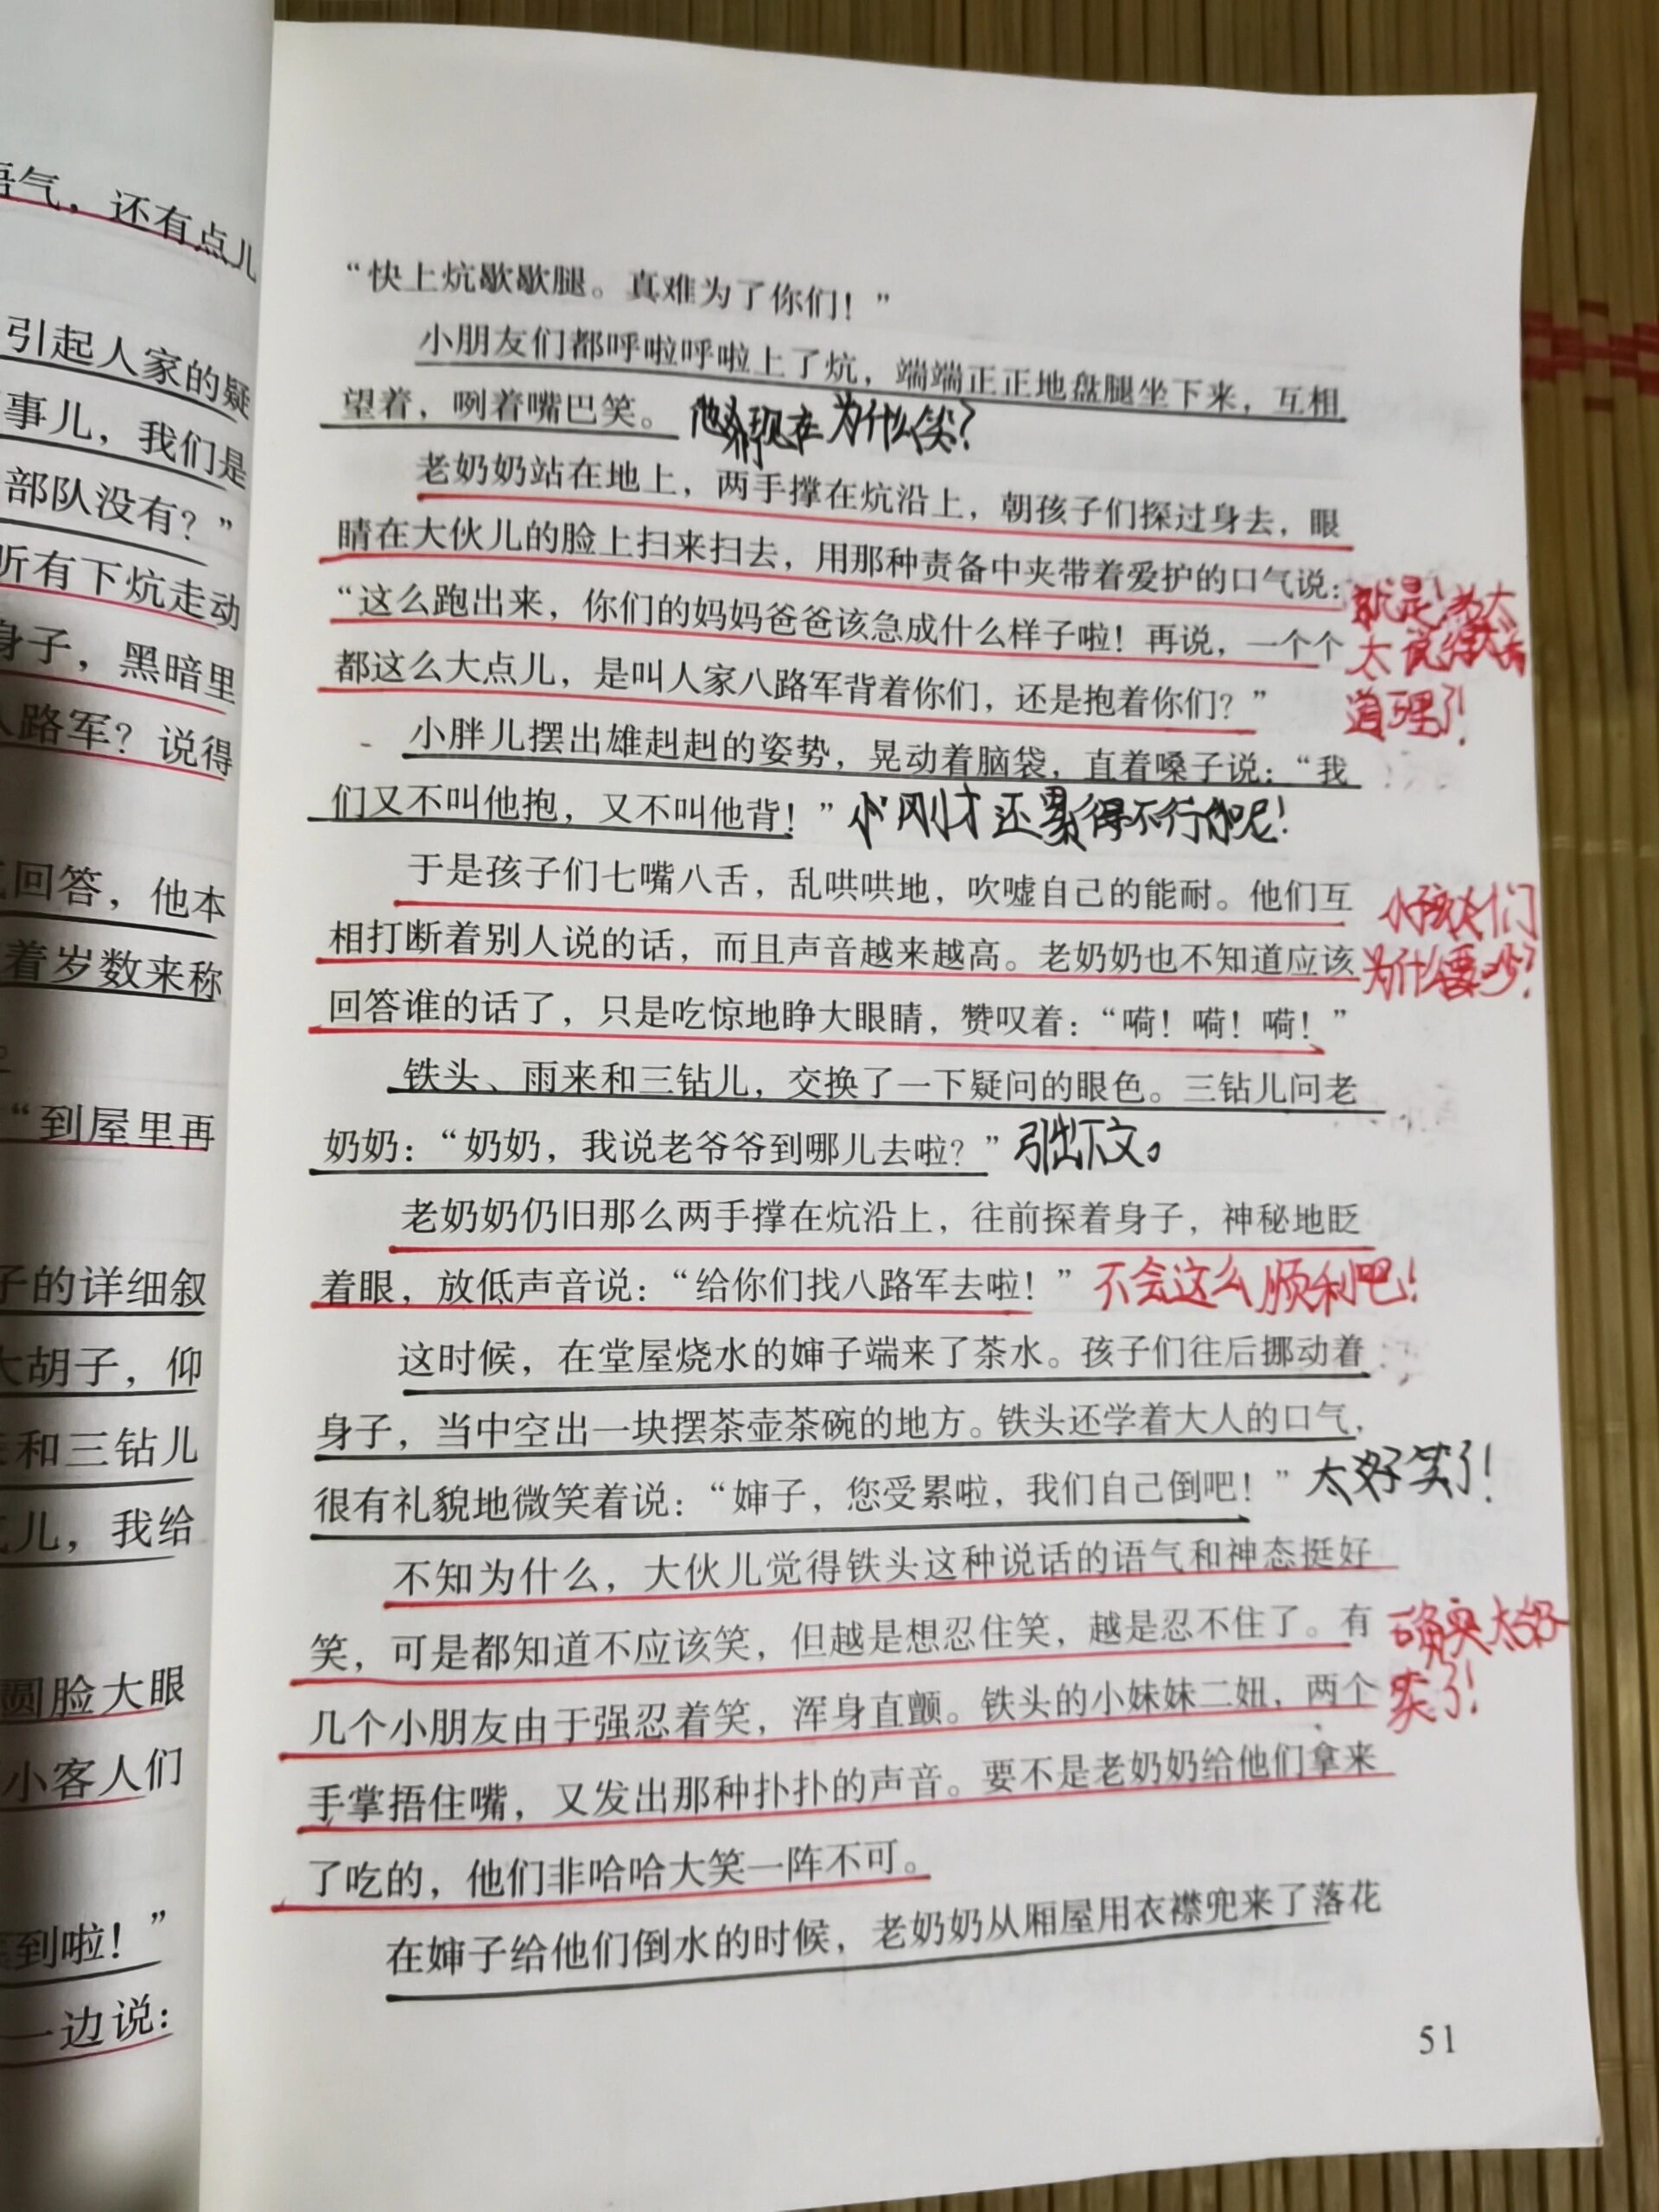 语气，还有点儿
引起人家的疑
事儿，我们是
部队没有？”
听有下炕走动
身子，黑暗里
八路军？说得
回答，他本
着岁数来称
“到屋里再
子的详细叙
大胡子，仰
和三钻儿
儿，我给
圆脸大眼
小客人们
到啦！”
一边说：
“快上炕歇歇腿。真难为了你们！”
小朋友们都呼啦呼啦上了炕，端端正正地盘腿坐下来，互相
望着，咧着嘴巴笑。他们现在为什么笑？
老奶奶站在地上，两手撑在炕沿上，朝孩子们探过身去，眼
睛在大伙儿的脸上扫来扫去，用那种责备中夹带着爱护的口气说：
“这么跑出来，你们的妈妈爸爸该急成什么样子啦！再说，一个个
都这么大点儿，是叫人家八路军背着你们，还是抱着你们？”
就是！
太说得太有
道理了！
小胖儿摆出雄赳赳的姿势，晃动着脑袋，直着嗓子说：“我
们又不叫他抱，又不叫他背！”刚才还累得不行呢！
于是孩子们七嘴八舌，乱哄哄地，吹嘘自己的能耐。他们互
相打断着别人说的话，而且声音越来越高。老奶奶也不知道应该
回答谁的话了，只是吃惊地睁大眼睛，赞叹着：“嗬！嗬！嗬！”
小孩们
为什么要吵？
铁头、雨来和三钻儿，交换了一下疑问的眼色。三钻儿问老
奶奶：“奶奶，我说老爷爷到哪儿去啦？”引出下文。
老奶奶仍旧那么两手撑在炕沿上，往前探着身子，神秘地眨
着眼，放低声音说：“给你们找八路军去啦！”不会这么顺利吧！
这时候，在堂屋烧水的婶子端来了茶水。孩子们往后挪动着
身子，当中空出一块摆茶壶茶碗的地方。铁头还学着大人的口气，
很有礼貌地微笑着说：“婶子，您受累啦，我们自己倒吧！”太好笑了！
不知为什么，大伙儿觉得铁头这种说话的语气和神态挺好
笑，可是都知道不应该笑，但越是想忍住笑，越是忍不住了。有
几个小朋友由于强忍着笑，浑身直颤。铁头的小妹妹二妞，两个
手掌捂住嘴，又发出那种扑扑的声音。要不是老奶奶给他们拿来
了吃的，他们非哈哈大笑一阵不可。
确实太好
笑了！
在婶子给他们倒水的时候，老奶奶从厢屋用衣襟兜来了落花
51